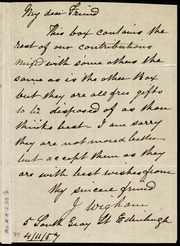 My dear Friend
This box contains the
rest of our contributions
mix'd with some others the
same as in the other Box
but they are all free gifts
to be disposed of as thou
thinks best. I am sorry
they are not more & better
but accept them as they
are with best wishes from
thy sincere friend
J. Wigham
5 South Gray St Edinburgh
4/11/57